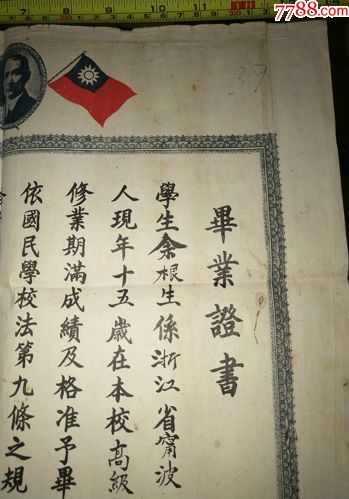 7788.com
37
畢業證書
學生余根生係浙江省甯波
人現年十五歲在本校高級
修業期滿成績及格准予畢
依國民學校法第九條之規